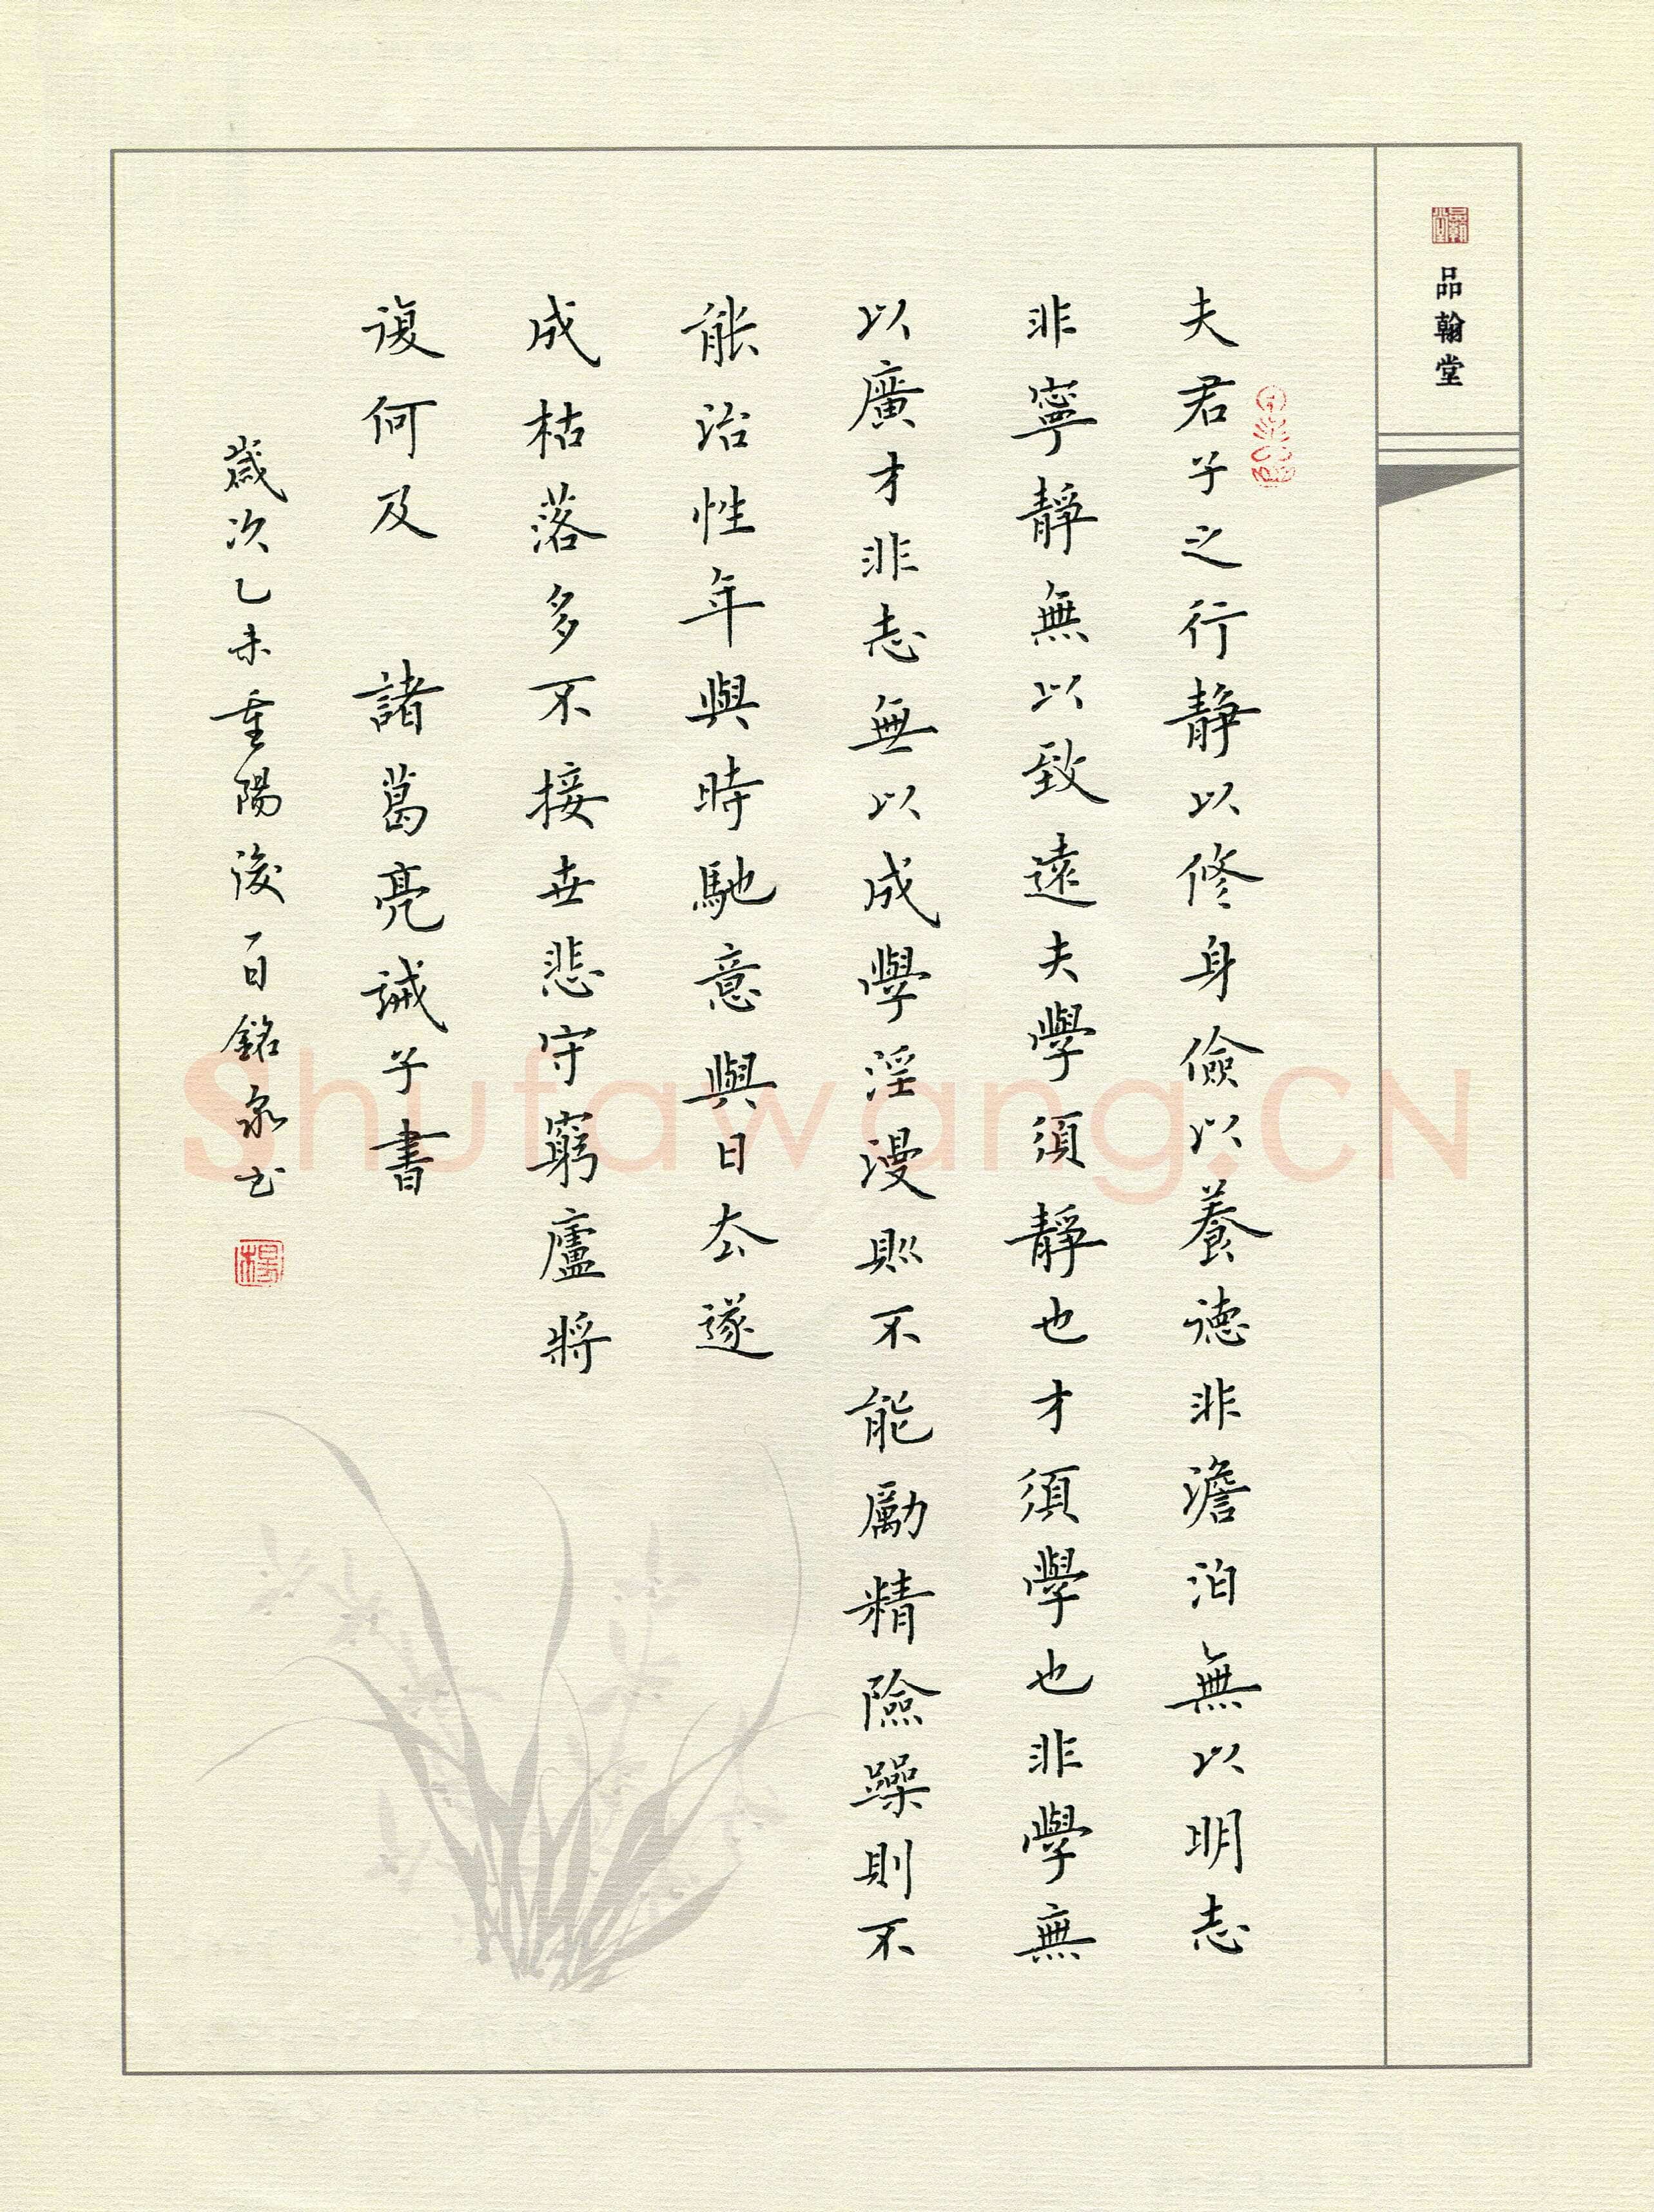 品翰堂
夫君子之行靜以修身儉以養德非澹泊無以明志
非寧靜無以致遠夫學須靜也才須學也非學無
以廣才非志無以成學淫漫則不能勵精險躁則不
能治性年與時馳意與日去遂
成枯落多不接世悲守窮廬將
復何及 諸葛亮誡子書
歲次乙未重陽後一日銘泉书
楊
Shufawang.CN